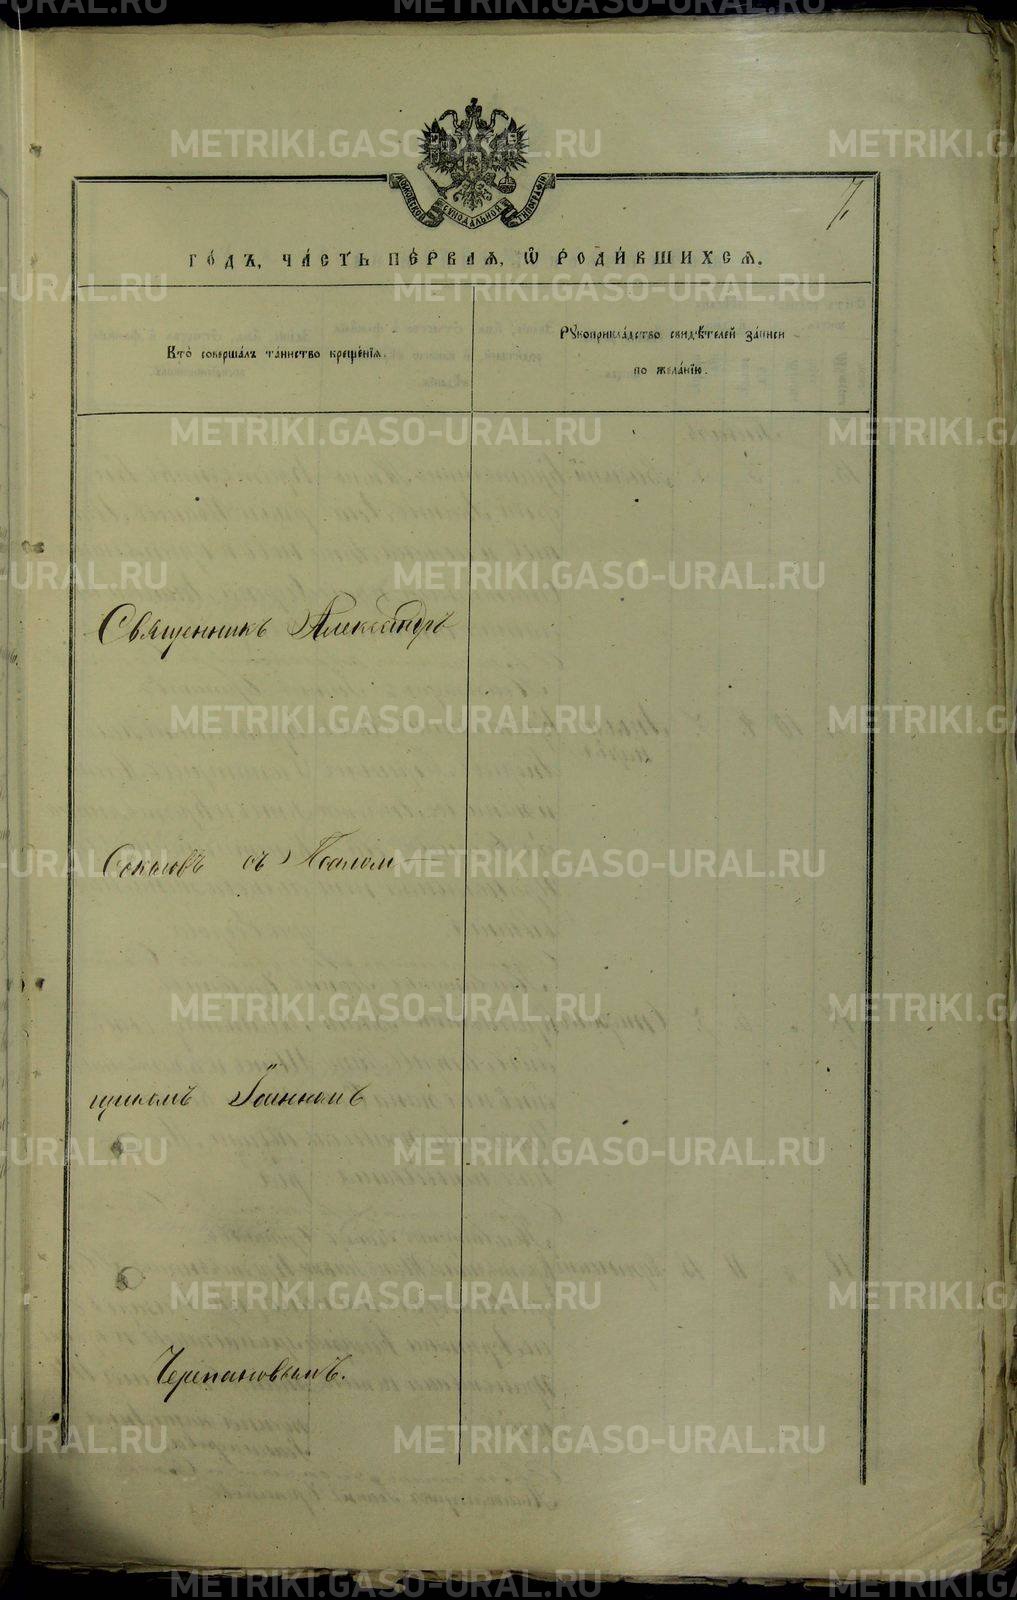 МОСКОВСКОЙ СѴНОДАЛЬНОЙ ТИПОГРАФІИ
7.
ГО́ДЪ, ЧА́СТЬ ПЕ́РВАѦ, Ѽ РОДИ́ВШИХСѦ.
Кто̀ соверша́лъ та́инство креще́нїѧ.
Рꙋкоприкла́дство свидѣ́телей за́писи
по жела́нїю.
Священникъ Александръ
Соколовъ съ Псалом-
щикомъ Іоанномъ
Черепановымъ.
METRIKI.GASO-URAL.RU